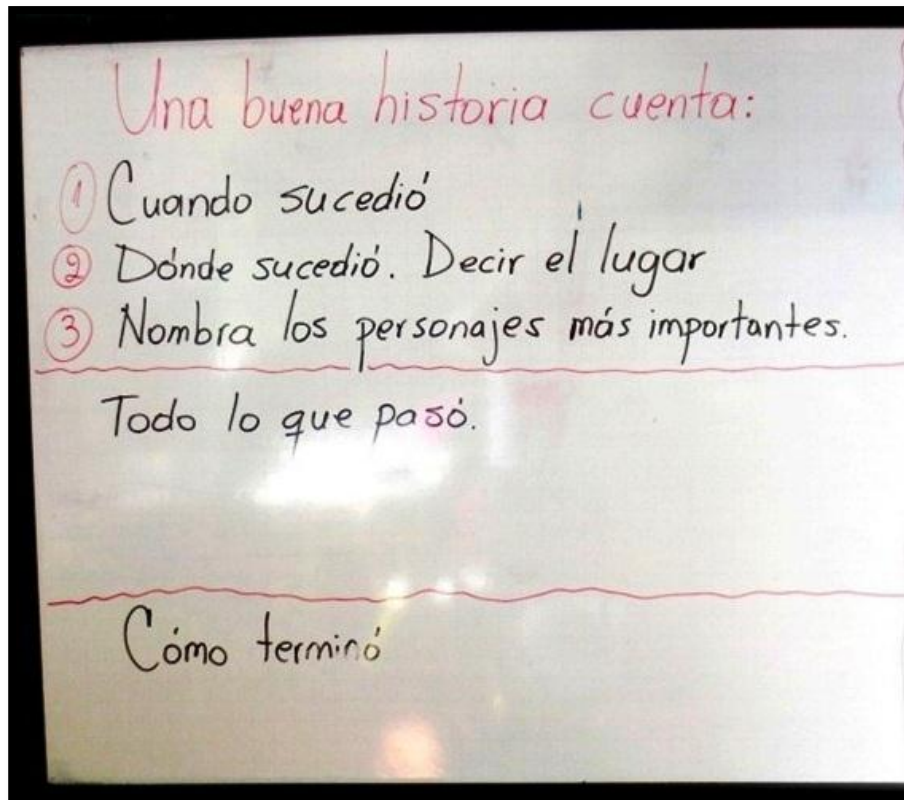 Una buena historia cuenta:
1 Cuando sucedió
2 Dónde sucedió. Decir el lugar
3 Nombra los personajes más importantes.
Todo lo que pasó.
Cómo terminó